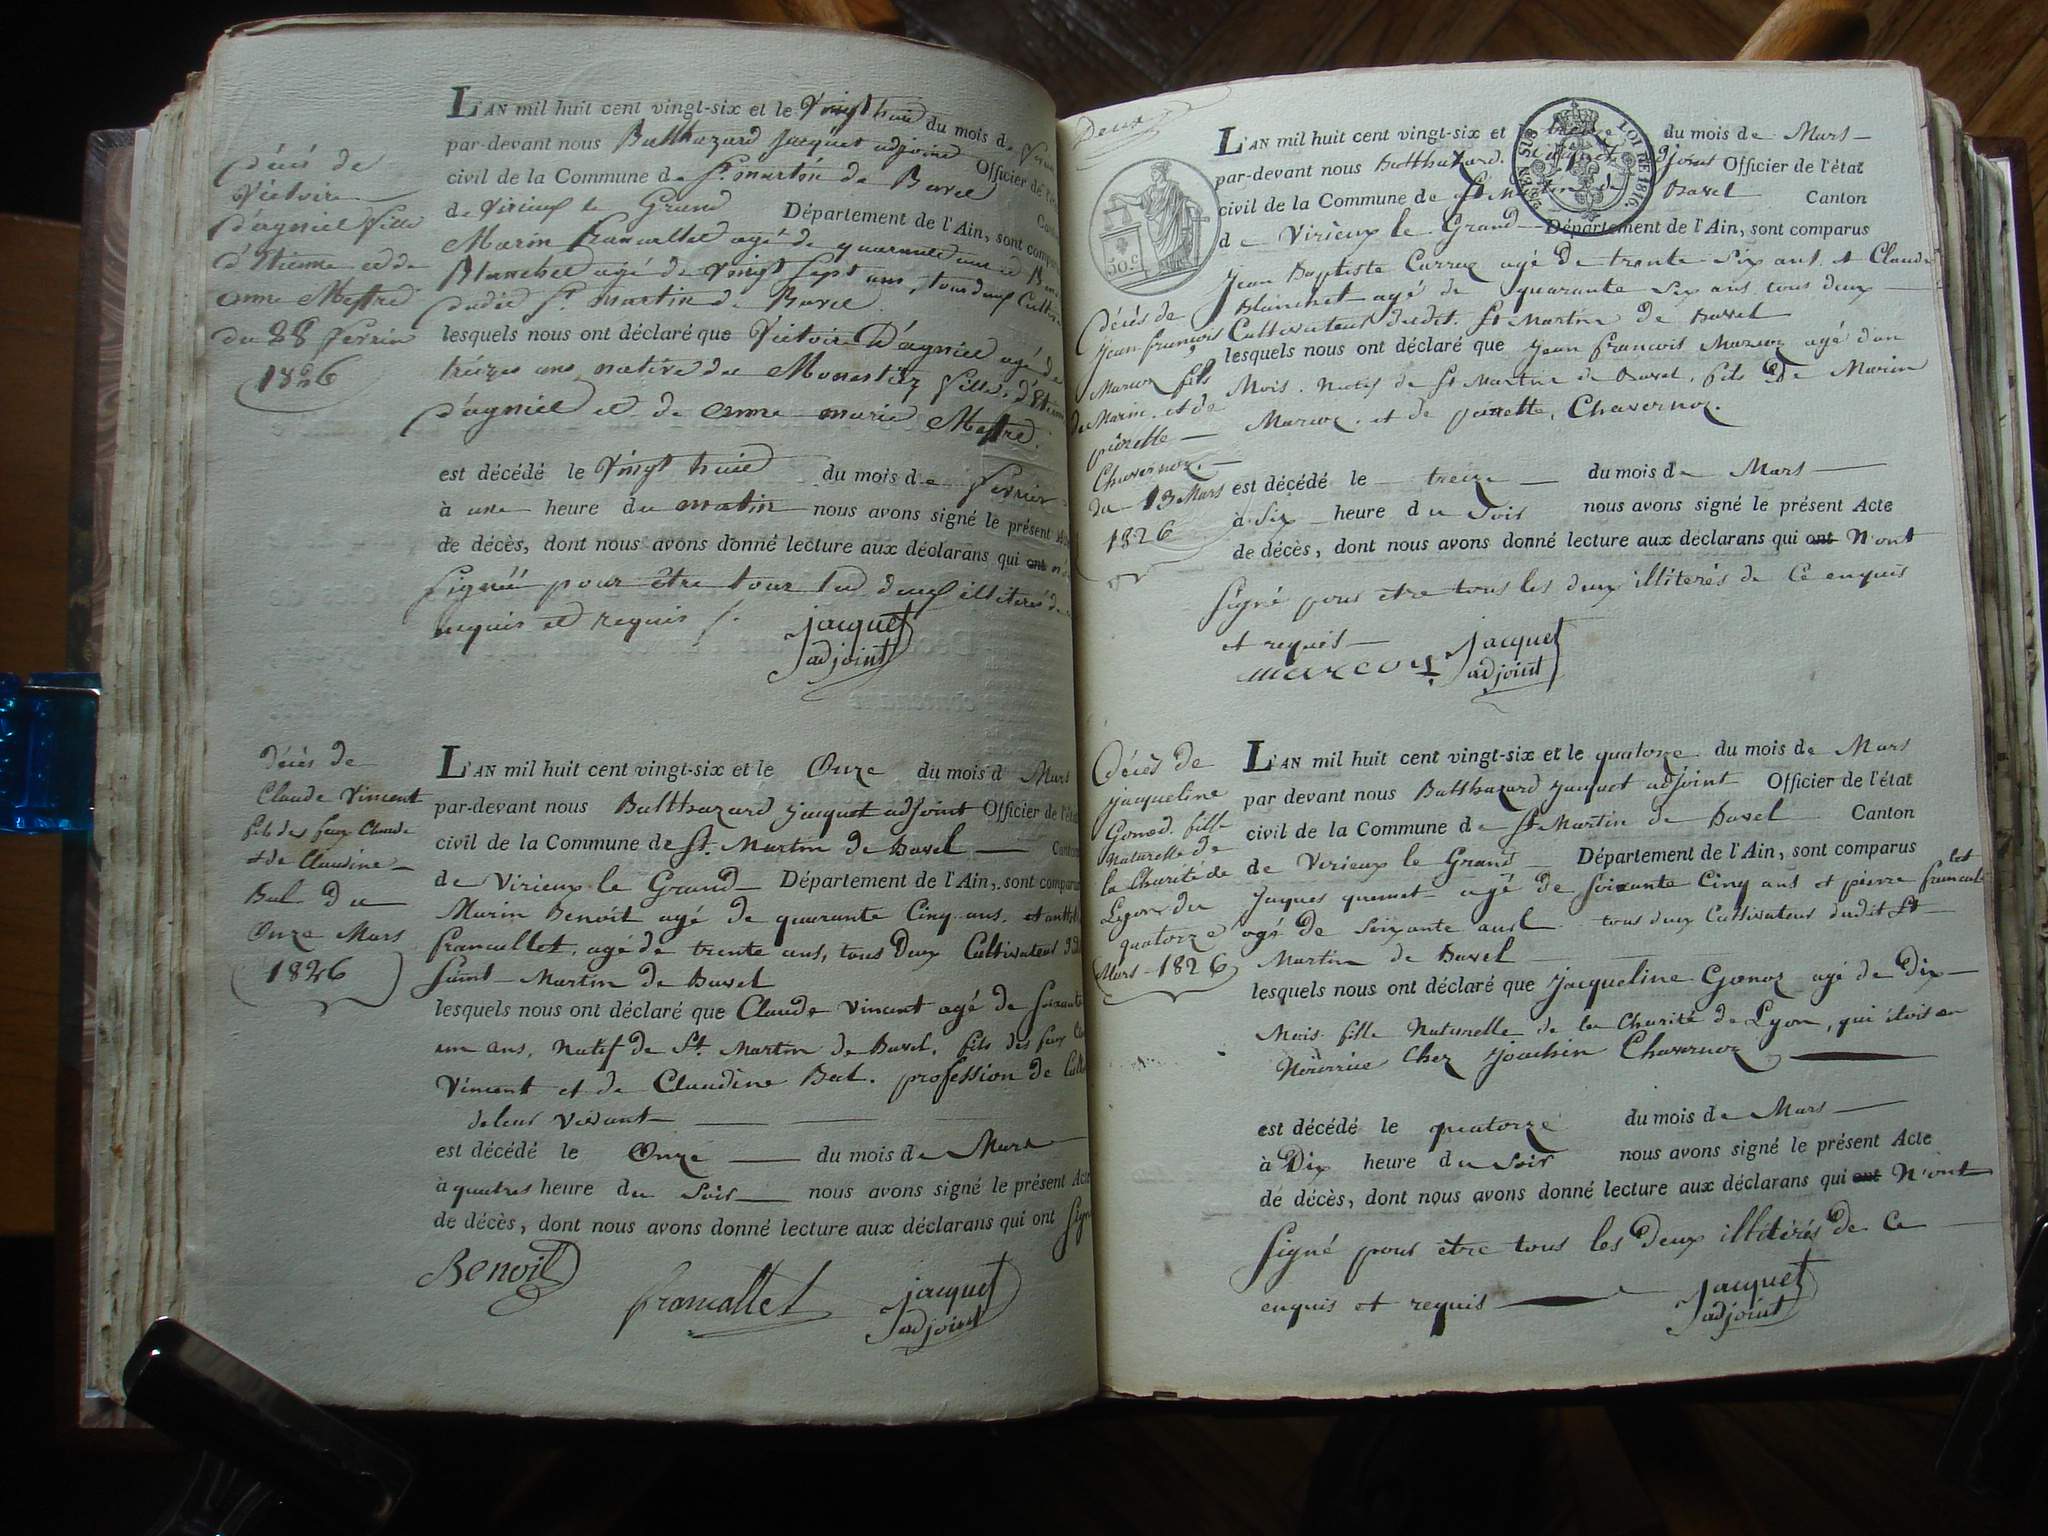 décès de
Victoire
D'agniel fille
d'Etienne et de
anne Mestre
du 28 Fevrier
1826
L'AN mil huit cent vingt-six et le Vingt huit du mois de
par-devant nous Balthazard Jacquet adjoint Officier de l'état
civil de la Commune de St. martin de Bavel
de Virieux le Grand Département de l'Ain, sont comparus
Marin francallet agé de quarante
Blanchet agé de Vingt Sept ans, tous deux
dudit St. martin de Bavel
lesquels nous ont déclaré que Victoire D'agniel agé de
treizes ans native du Monestier fille d'Etienne
D'agniel et de anne marie Mestre.
est décédé le Vingt huit du mois de Fevrier
à une heure du matin nous avons signé le présent
de décès, dont nous avons donné lecture aux déclarans qui ont
Signéé pour être tour deux illiterés
enquis et requis /.
jacquet
adjoint
décès de
Claude Vincent
fils des feux Claude
et de Claudine
Bal du
Onze Mars
1826
L'AN mil huit cent vingt-six et le Onze du mois d Mars
par-devant nous Balthazard Jacquet adjoint Officier de l'état
civil de la Commune de St. Martin de Bavel Canton
de Virieux le Grand Département de l'Ain, sont comparus
Marin Benoit agé de quarante Cinq ans, et
francallet, agé de trente ans, tous Deux Cultivateur
Saint Martin de Bavel
lesquels nous ont déclaré que Claude Vincent agé de Soixante
un ans, Natif de St. Martin de Bavel, fils des feux
Vincent et de Claudine Bal. profession de
de leur Vivant
est décédé le Onze du mois de Mars
à quatres heure du Soir nous avons signé le présent Acte
de décès, dont nous avons donné lecture aux déclarans qui ont Signé
Benoit
francallet
jacquet
adjoint
Deux
SEVEN SIS
LOI DE 1816.
50 c
décès de
Jean françois
Marcoz fils
de Marin, et de
pierrette
Chavernoz.
du 13 Mars
1826
L'AN mil huit cent vingt-six et le treize du mois de Mars
par-devant nous Balthazard. Jacquet adjoint Officier de l'état
civil de la Commune de St Martin de Bavel Canton
de Virieux le Grand Département de l'Ain, sont comparus
Jean Baptiste Carraz agé de trente Six ans et Claude
Blanchet agé de quarante Six ans tous deux
Cultivateur dudit. St Martin de Bavel
lesquels nous ont déclaré que Jean francois Marcoz agé d'un
Mois. Natif de St Martin de Bavel, fils De Marin
Marcoz. et de pierrette, Chavernoz.
est décédé le treize du mois de Mars
à Six heure du Soir nous avons signé le présent Acte
de décès, dont nous avons donné lecture aux déclarans qui ont N'ont
Signé pour être tous les deux illiterés de Ce enquis
et requis
marcoz
jacquet
adjoint
Décès de
jacqueline
Gonod. fille
Naturelle de
la Charité de
Lyon du
quatorze
Mars 1826
L'AN mil huit cent vingt-six et le quatorze du mois de Mars
par devant nous Balthazard Jacquet adjoint Officier de l'état
civil de la Commune de St Martin de Bavel Canton
de Virieux le Grand Département de l'Ain, sont comparus
Jacques agé de Soixante Cinq ans et pierre francallet
agé de Soixante ans tous deux Cultivateur dudit St
Martin de Bavel
lesquels nous ont déclaré que Jacqueline Gonoz agé de Dix
Mois fille Naturelle de la Charité de Lyon, qui étoit en
Nourrice Chez Joachin Chavernoz
est décédé le quatorze du mois de Mars
à Dix heure du Soir nous avons signé le présent Acte
de décès, dont nous avons donné lecture aux déclarans qui ont N'ont
Signé pour être tous les deux illiterés de Ce
enquis et requis
jacquet
adjoint